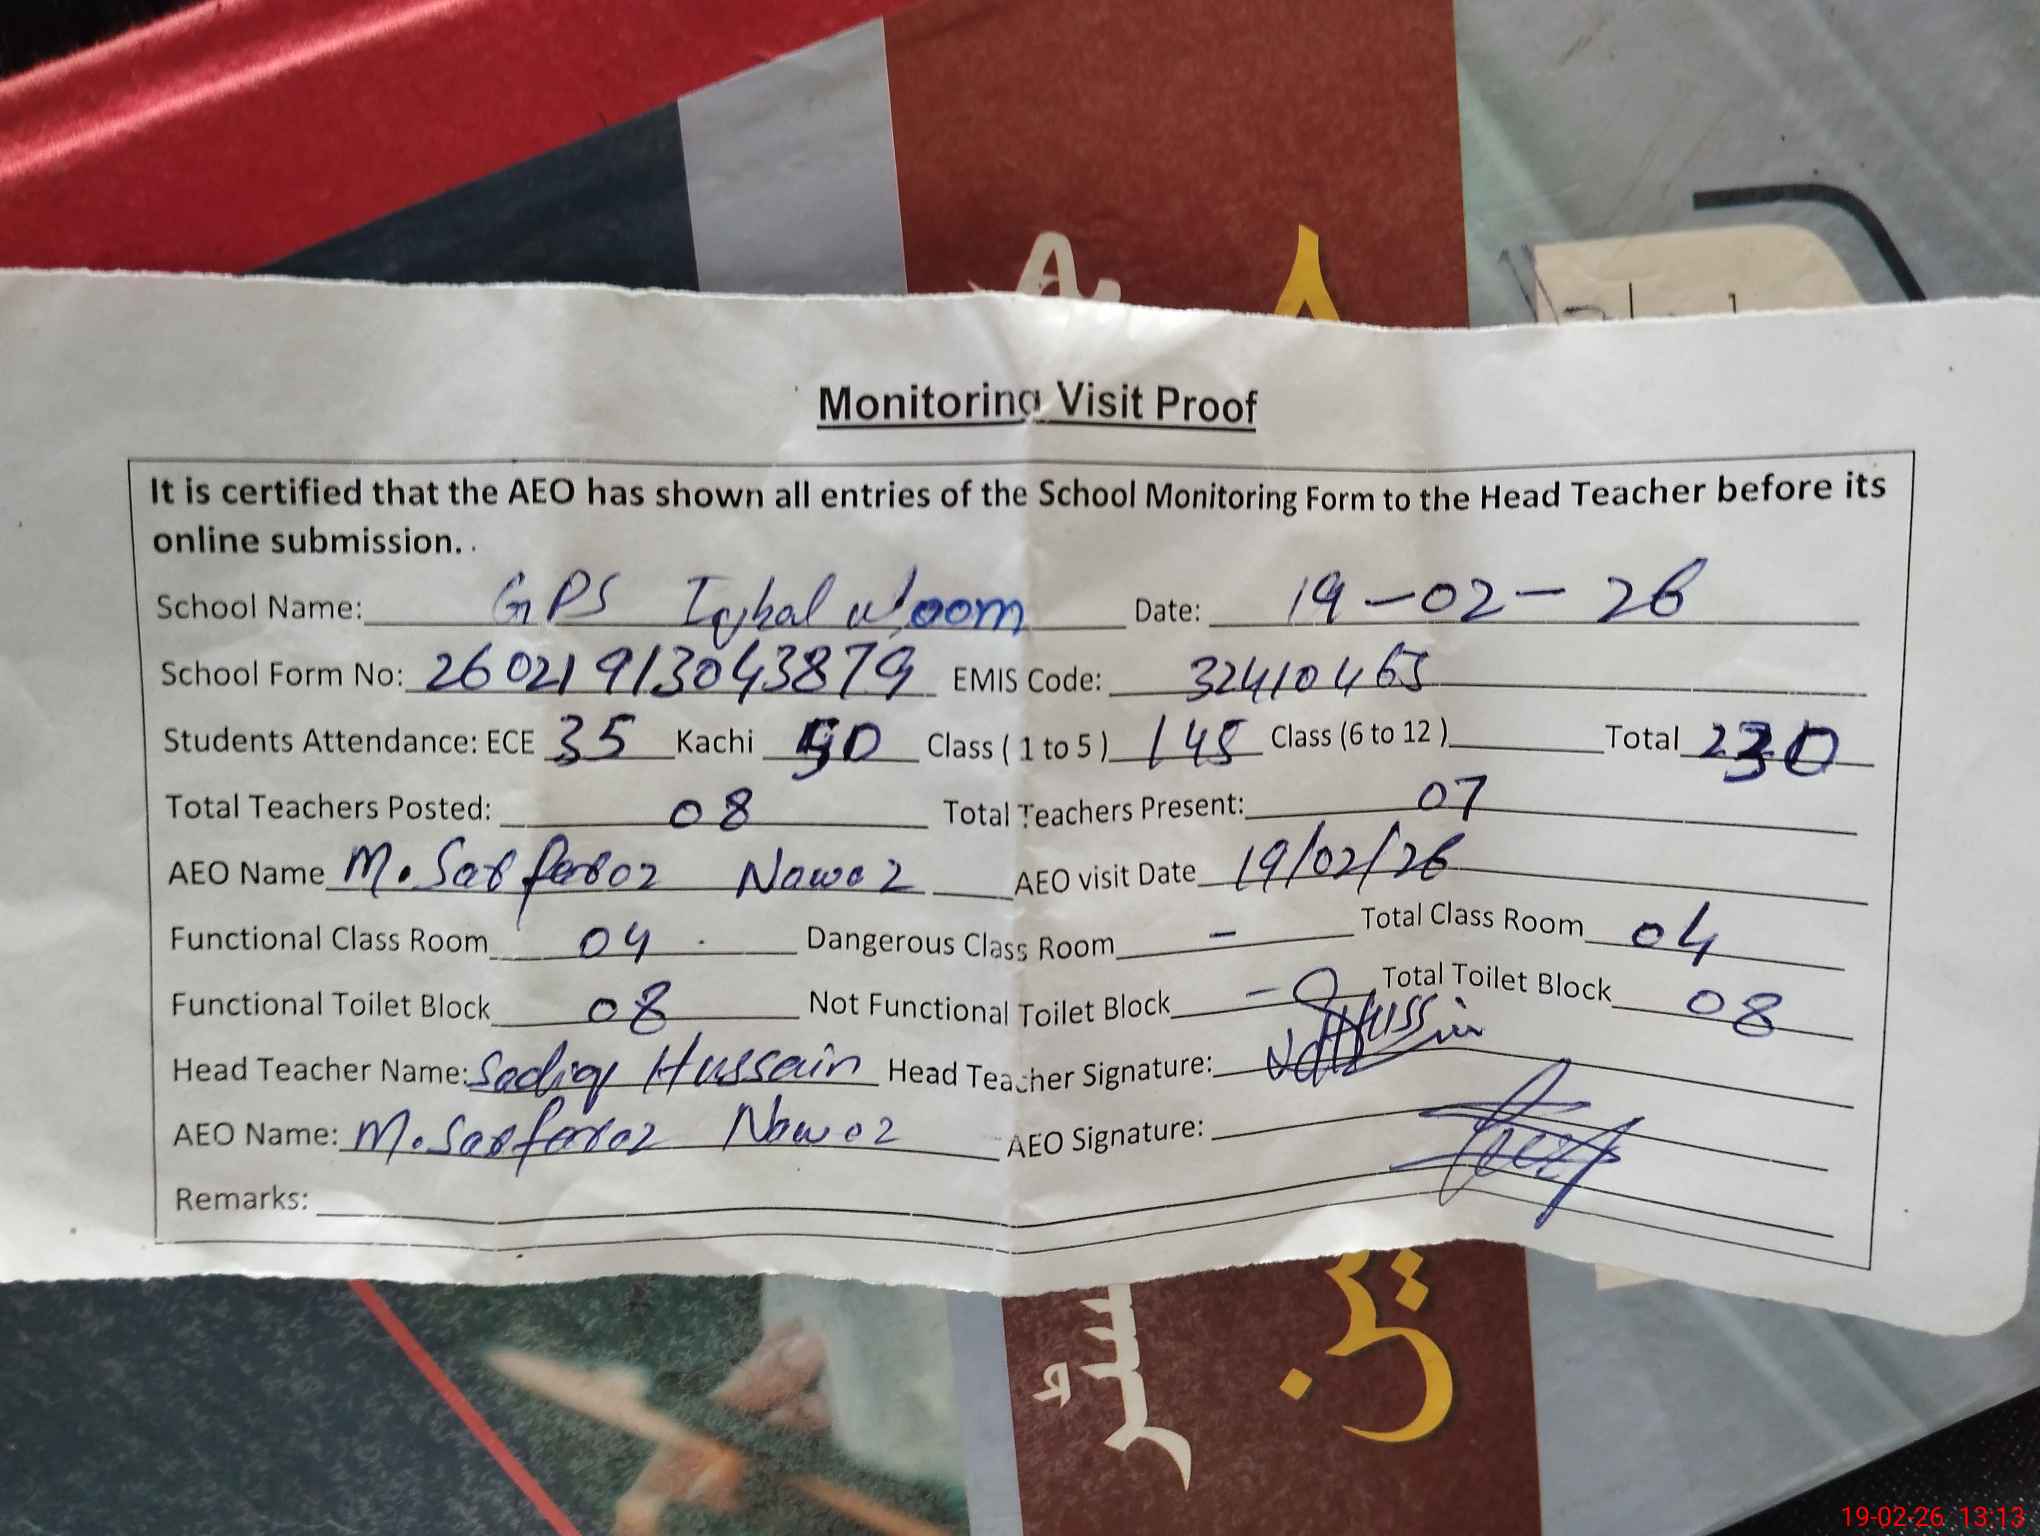 Monitoring Visit Proof
It is certified that the AEO has shown all entries of the School Monitoring Form to the Head Teacher before its
online submission.
School Name: GPS Iqbal uloom Date: 19-02-26
School Form No: 26021913043879 EMIS Code: 32410465
Students Attendance: ECE 35 Kachi 50 Class ( 1 to 5 ) 145 Class (6 to 12 ) Total 230
Total Teachers Posted: 08 Total Teachers Present: 07
AEO Name M. Sarfaraz Nawaz AEO visit Date 19/02/26
Functional Class Room 04 Dangerous Class Room - Total Class Room 04
Functional Toilet Block 08 Not Functional Toilet Block - Total Toilet Block 08
Head Teacher Name: Sadiq Hussain Head Teacher Signature:
AEO Name: M. Sarfaraz Nawaz AEO Signature:
Remarks:
19-02-26 13:13